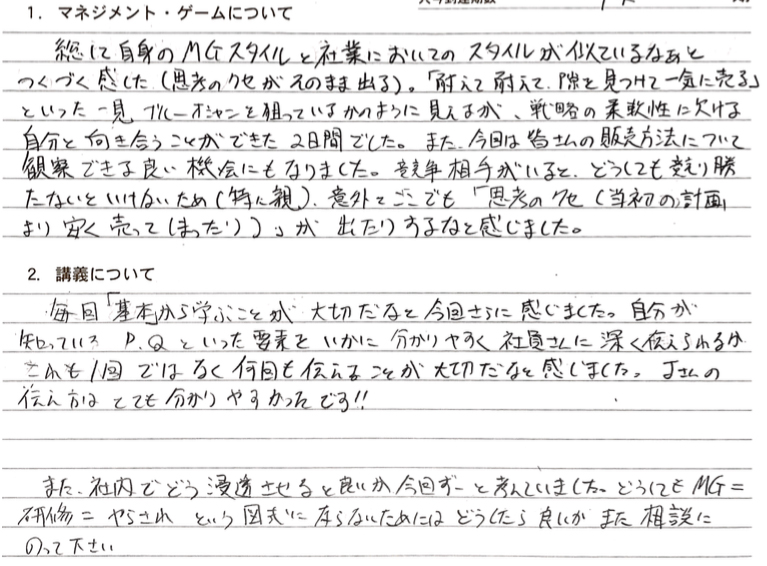 1. マネジメント・ゲームについて
総じて自身のMGスタイルと社業においてのスタイルが似ているなぁと
つくづく感じた(思考のクセがそのまま出る)。「耐えて耐えて、隙を見つけて一気に売る」
といった一見ブルーオーシャンを狙っているかのように見えるが、戦略の柔軟性に欠ける
自分と向き合うことができた2日間でした。また、今回は皆さんの販売方法について
観察できる良い機会にもなりました。競争相手がいると、どうしても競り勝
たないといけないため(特に親)、意外とここでも「思考のクセ(当初の計画
より安く売ってしまったり)」が出たりするなと感じました。
2. 講義について
毎回「基本」から学ぶことが大切だなと今回さらに感じました。自分が
知っているP.Qといった要素をいかに分かりやすく社員さんに深く伝えられるか
これも1回ではなく何回も伝えることが大切だなと感じました。Jさんの
伝え方はとても分かりやすかったです!!
また、社内でどう浸透させると良いか今回ずーっと考えていました。どうしてもMG=
研修=やらされという図式にならないためにはどうしたら良いかまた相談に
のって下さい